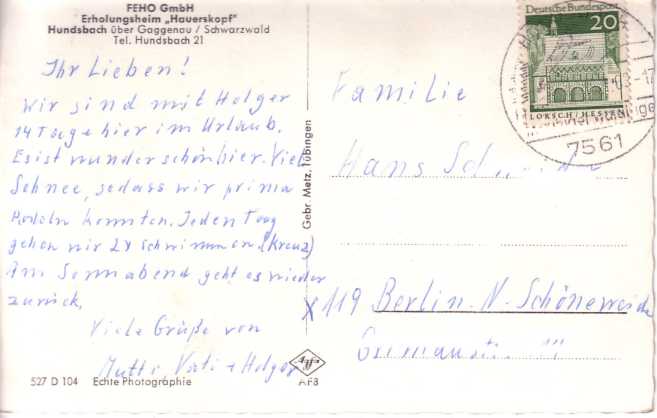 FEHO GmbH
Erholungsheim „Hauerskopf"
Hundsbach über Gaggenau / Schwarzwald
Tel. Hundsbach 21
Ihr Lieben!
Wir sind mit Holger
14 Tage hier im Urlaub.
Es ist wunderschön hier. Viel
Schnee, sodass wir prima
Rodeln konnten. Jeden Tag
gehen wir 2x schwimmen. (Kreuz)
Am Sonnabend geht es wieder
zurück.
Viele Grüße von
Mutti, Vati + Holger
527 D 104 Echte Photographie
Agfa
AF8
Gebr. Metz, Tübingen
Deutsche Bundespost
20
LORSCH/HESSEN
7561
Familie
Hans
X 119 Berlin-N-Schöneweide